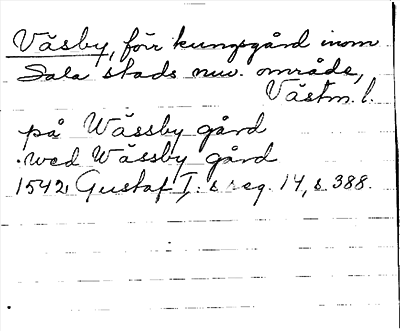 Väsby, förr kungsgård inom
Sala stads nuv. område,
Västm. l.
på Wässby gård
wed Wässby gård
1542. Gustaf I:s reg. 14, s. 388.